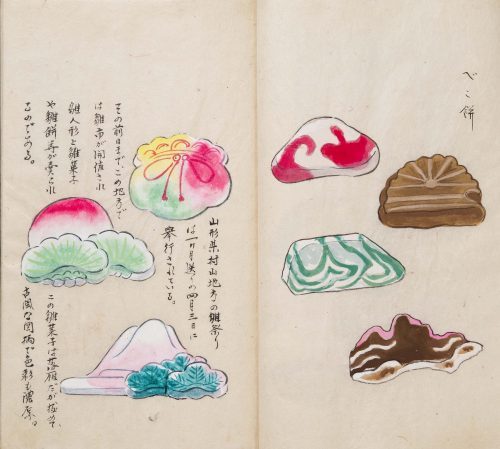 べこ餅
山形県村山地方の雛祭り
は一ヶ月遅れの四月三日に
挙行されている。
その前日まで、この地方で
は雛市が開催され
雛人形と雛菓子
や雛餅等が売られ
るのである。
この雛菓子は落雁だが極めて
古風な図柄で色彩も濃厚。